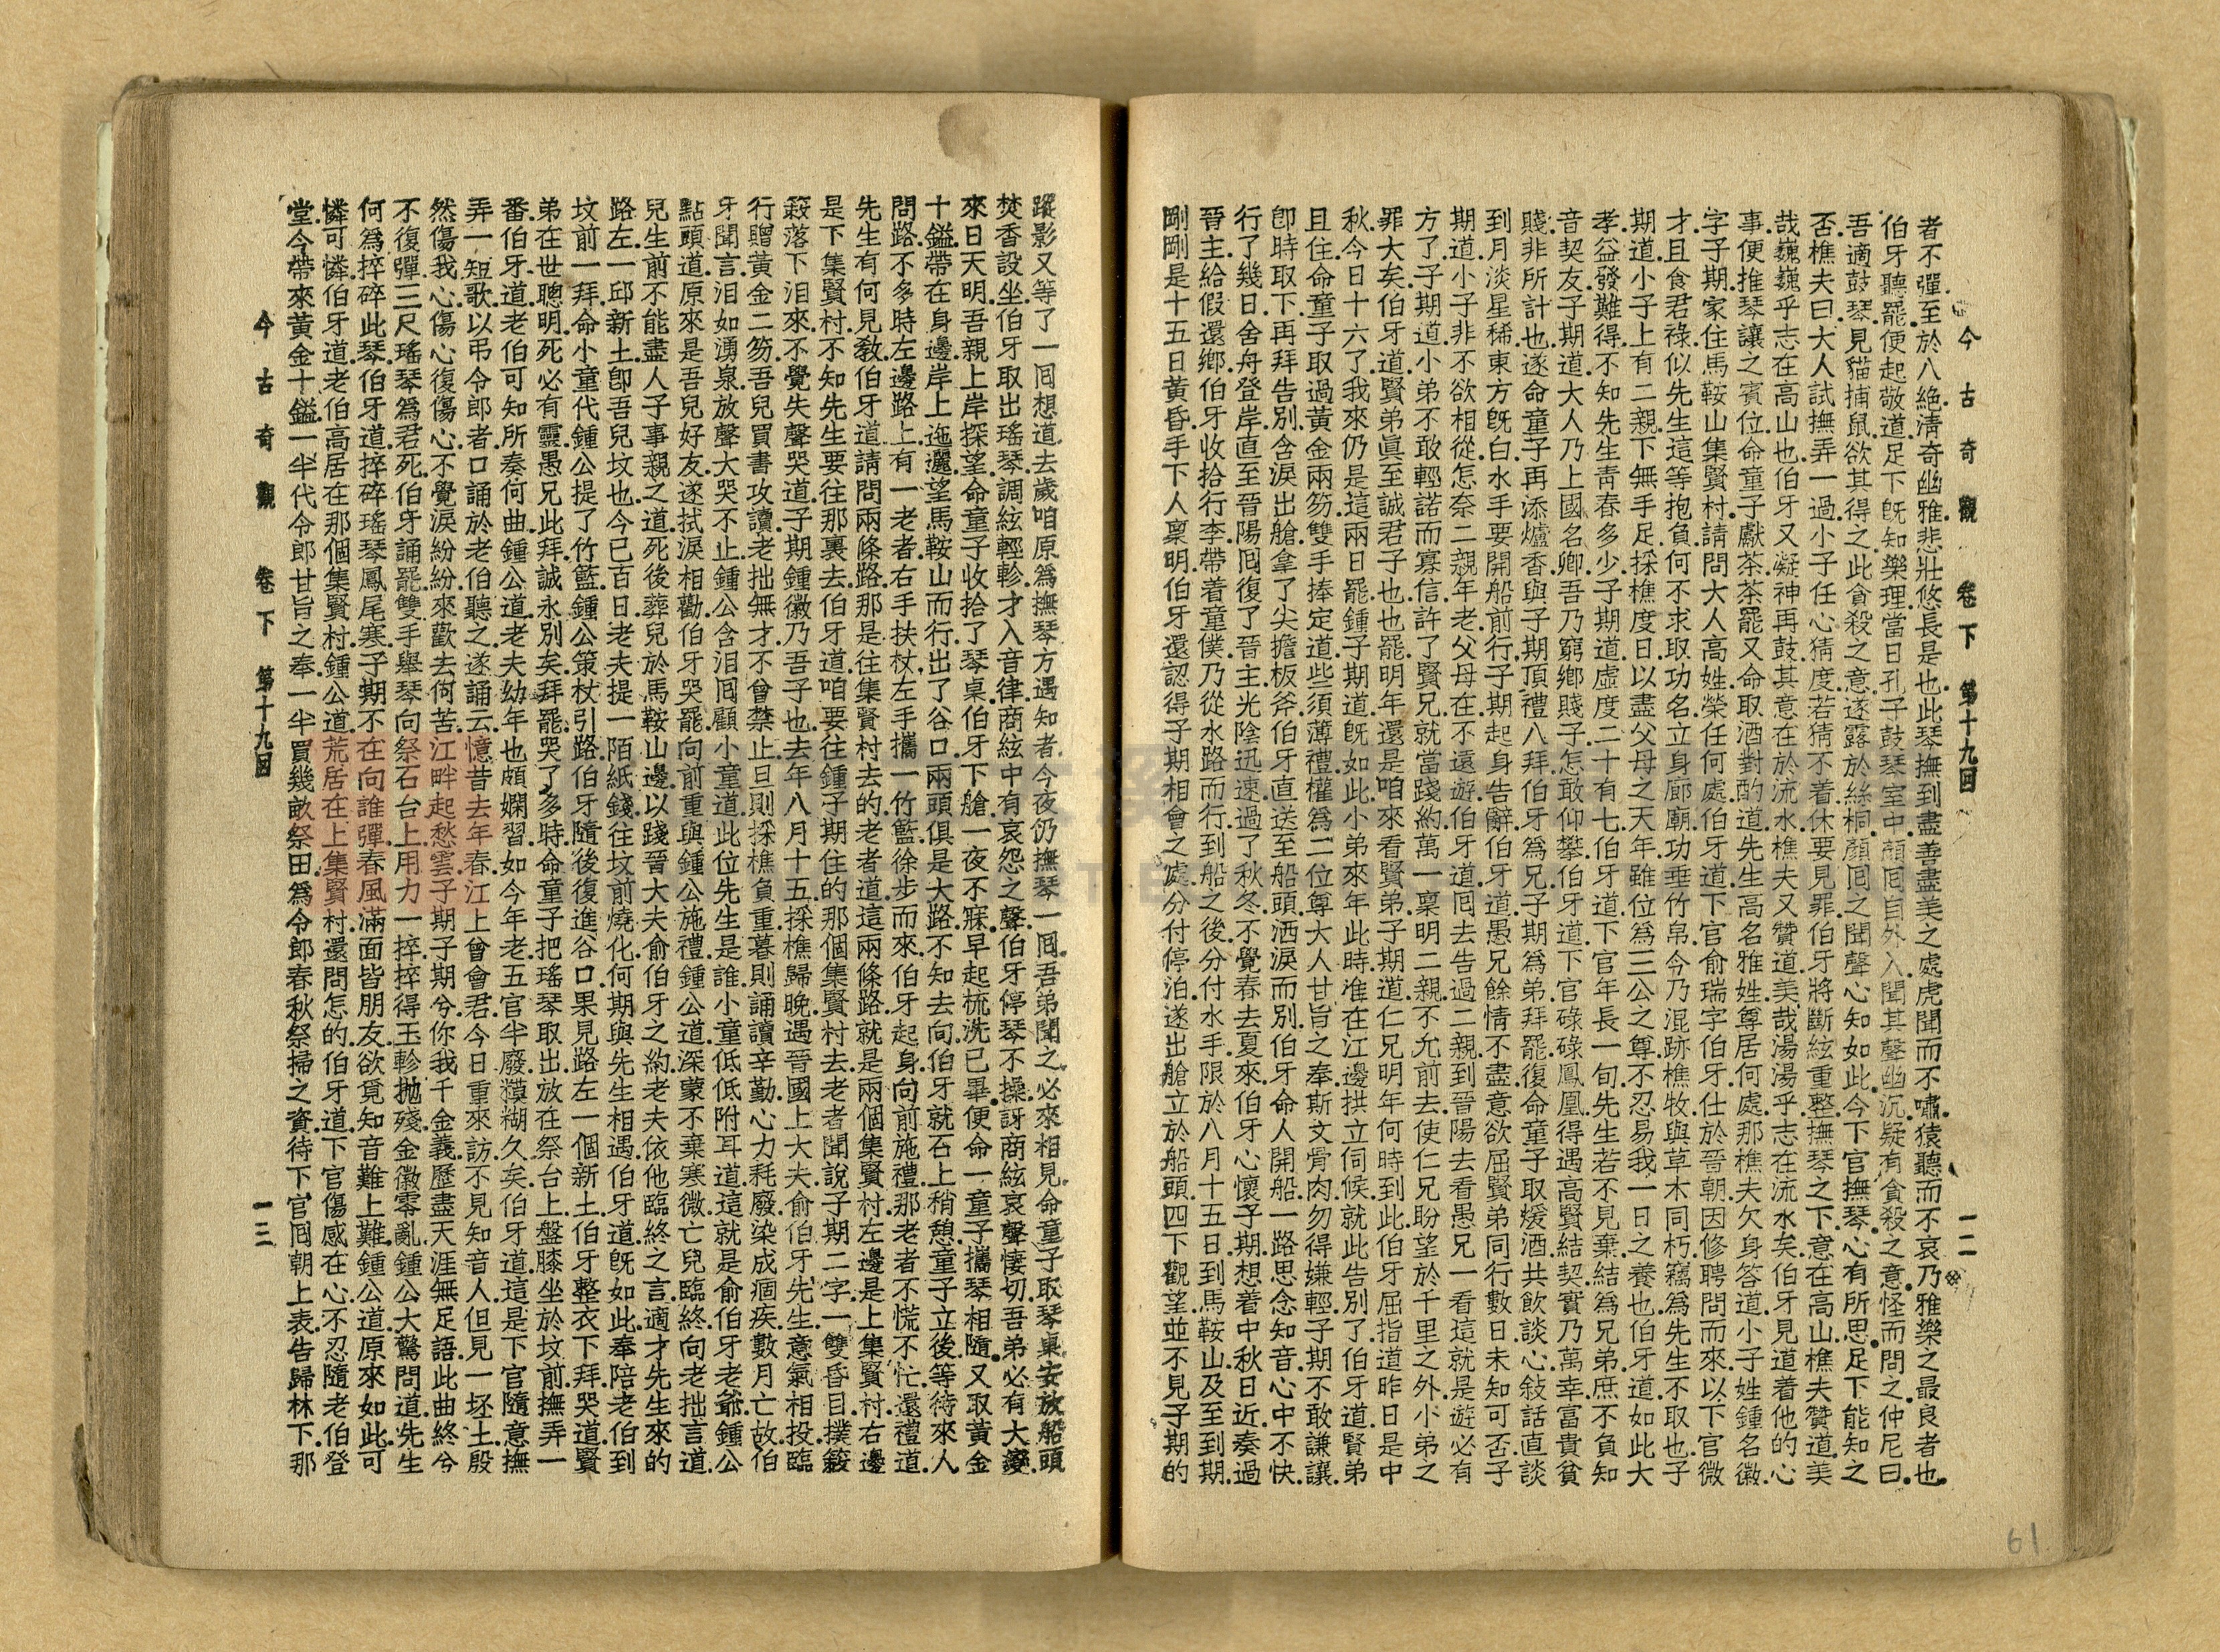 今古奇觀　卷下　第十九回　一二
者不彈.至於八絶.清奇幽雅.悲壯悠長是也.此琴撫到盡善盡美之處.虎聞而不嘯.猿聽而不哀.乃雅樂之最良者也.
伯牙聽罷.便起敬道.足下旣知樂理.當日孔子鼓琴室中.顏囘自外入.聞其聲幽沉.疑有貪殺之意.怪而問之.仲尼曰.
吾適鼓琴.見貓捕鼠.欲其得之.此貪殺之意.遂露於絲桐.顏囘之聞聲心知如此.今下官撫琴.心有所思.足下能知之
否.樵夫曰.大人試撫弄一過.小子任心猜度.若猜不着.休要見罪.伯牙將斷絃重整.撫琴之下.意在高山.樵夫贊道.美
哉巍巍乎.志在高山也.伯牙又凝神再鼓.其意在於流水.樵夫又贊道.美哉湯湯乎.志在流水矣.伯牙見道着他的心
事.便推琴讓之賓位.命童子獻茶.茶罷.又命取酒對酌道.先生高名雅姓.尊居何處.那樵夫欠身答道.小子姓鍾名徽.
字子期.家住馬鞍山集賢村.請問大人高姓.榮任何處.伯牙道.下官俞瑞字伯牙.仕於晉朝.因修聘問而來.以下官微
才.且食君祿.似先生這等抱負.何不求取功名.立身廊廟.功垂竹帛.今乃混跡樵牧.與草木同朽.竊爲先生不取也.子
期道.小子上有二親.下無手足.採樵度日.以盡父母之天年.雖位爲三公之尊.不忍易我一日之養也.伯牙道.如此大
孝.益發難得.不知先生靑春多少.子期道.虛度二十有七.伯牙道.下官年長一旬.先生若不見棄.結爲兄弟.庶不負知
音契友.子期道.大人乃上國名卿.吾乃窮鄉賤子.怎敢仰攀.伯牙道.下官碌碌鳳凰.得遇高賢結契.實乃萬幸.富貴貧
賤.非所計也.遂命童子再添爐香.與子期頂禮八拜.伯牙爲兄.子期爲弟.拜罷.復命童子取煖酒共飲.談心敍話.直談
到月淡星稀.東方旣白.水手要開船前行.子期起身告辭.伯牙道.愚兄餘情不盡.意欲屈賢弟同行數日.未知可否.子
期道.小子非不欲相從.怎奈二親年老.父母在不遠遊.伯牙道.囘去告過二親.到晉陽去看愚兄一看.這就是遊必有
方了.子期道.小弟不敢輕諾而寡信.許了賢兄.就當踐約.萬一稟明二親不允前去.使仁兄盼望於千里之外.小弟之
罪大矣.伯牙道.賢弟眞至誠君子也.也罷.明年還是咱來看賢弟.子期道.仁兄明年何時到此.伯牙屈指道.昨日是中
秋.今日十六了.我來仍是這兩日罷.鍾子期道.旣如此.小弟來年此時.准在江邊拱立伺候.就此告別了.伯牙道.賢弟
且住.命童子取過黃金兩笏.雙手捧定道.些須薄禮.權爲二位尊大人甘旨之奉.斯文骨肉.勿得嫌輕.子期不敢謙讓.
卽時取下.再拜告別.含淚出艙.拿了尖擔板斧.伯牙直送至船頭.洒淚而別.伯牙命人開船.一路思念知音.心中不快.
行了幾日.舍舟登岸.直至晉陽.囘復了晉主.光陰迅速.過了秋冬.不覺春去夏來.伯牙心懷子期.想着中秋日近.奏過
晉主.給假還鄉.伯牙收拾行李.帶着童僕.乃從水路而行.到船之後.分付水手.限於八月十五日.到馬鞍山.及至到期.
剛剛是十五日黃昏.手下人稟明.伯牙還認得子期相會之處.分付停泊.遂出艙立於船頭.四下觀望.並不見子期的
61
蹤影.又等了一囘.想道.去歲咱原爲撫琴.方遇知者.今夜仍撫琴一囘.吾弟聞之.必來相見.命童子取琴桌.安放船頭.
焚香設坐.伯牙取出瑤琴.調絃輕軫.才入音律.商絃中有哀怨之聲.伯牙停琴不操.訝商絃哀聲悽切.吾弟必有大變.
來日天明.吾親上岸探望.命童子收拾了琴桌.伯牙下艙.一夜不寐.早起梳洗已畢.便命一童子攜琴相隨.又取黃金
十鎰.帶在身邊.岸上迤邐望馬鞍山而行.出了谷口.兩頭俱是大路.不知去向.伯牙就石上稍憩.童子立後等待來人
問路.不多時.左邊路上.有一老者.右手扶杖.左手攜一竹籃.徐步而來.伯牙起身.向前施禮.那老者不慌不忙.還禮道.
先生有何見敎.伯牙道.請問兩條路.那是往集賢村去的.老者道.這兩條路.就是兩個集賢村.左邊是上集賢村.右邊
是下集賢村.不知先生要往那裏去.伯牙道.咱要往鍾子期住的那個集賢村去.老者聞說子期二字.一雙昏目.撲簌
簌落下淚來.不覺失聲哭道.子期鍾徽乃吾子也.去年八月十五.採樵歸晚.遇晉國上大夫俞伯牙先生.意氣相投.臨
行贈黃金二笏.吾兒買書攻讀.老拙無才.不曾禁止.旦則採樵負重.暮則誦讀辛勤.心力耗廢.染成痼疾.數月亡故.伯
牙聞言.泪如湧泉.放聲大哭不止.鍾公含泪囘顧小童道.此位先生是誰.小童低低附耳道.這就是俞伯牙老爺.鍾公
點頭道.原來是吾兒好友.遂拭淚相勸.伯牙哭罷.向前重與鍾公施禮.鍾公道.深蒙不棄寒微.亡兒臨終.向老拙言道.
兒生前不能盡人子事親之道.死後葬兒於馬鞍山邊.以踐晉大夫俞伯牙之約.老夫依他臨終之言.適才先生來的
路左一邱新土.卽吾兒坟也.今已百日.老夫提一陌紙錢.往坟前燒化.何期與先生相遇.伯牙道.旣如此.奉陪老伯到
坟前一拜.命小童代鍾公提了竹籃.鍾公策杖引路.伯牙隨後.復進谷口.果見路左一個新土.伯牙整衣下拜.哭道.賢
弟在世聰明.死必有靈.愚兄此拜.誠永別矣.拜罷.哭了多時.命童子把瑤琴取出.放在祭台上.盤膝坐於坟前.撫弄一
番.伯牙道.老伯可知所奏何曲.鍾公道.老夫幼年也頗嫻習.如今年老.五官半廢.糢糊久矣.伯牙道.這是下官隨意撫
弄一短歌.以弔令郎者.口誦於老伯聽之.遂誦云.憶昔去年春.江上曾會君.今日重來訪.不見知音人.但見一坯土.殷
然傷我心.傷心復傷心.不覺淚紛紛.來歡去何苦.江畔起愁雲.子期子期兮.你我千金義.歷盡天涯無足語.此曲終兮
不復彈.三尺瑤琴爲君死.伯牙誦罷.雙手舉琴.向祭石台上.用力一摔.摔得玉軫抛殘.金徽零亂.鍾公大驚.問道.先生
何爲摔碎此琴.伯牙道.摔碎瑤琴鳳尾寒.子期不在向誰彈.春風滿面皆朋友.欲覓知音難上難.鍾公道.原來如此.可
憐可憐.伯牙道.老伯高居.在那個集賢村.鍾公道.荒居在上集賢村.還問怎的.伯牙道.下官傷感在心.不忍隨老伯登
堂.今帶來黃金十鎰.一半代令郎甘旨之奉.一半買幾畝祭田.爲令郎春秋祭掃之資.待下官囘朝.上表告歸林下.那
今古奇觀　卷下　第十九回　一三